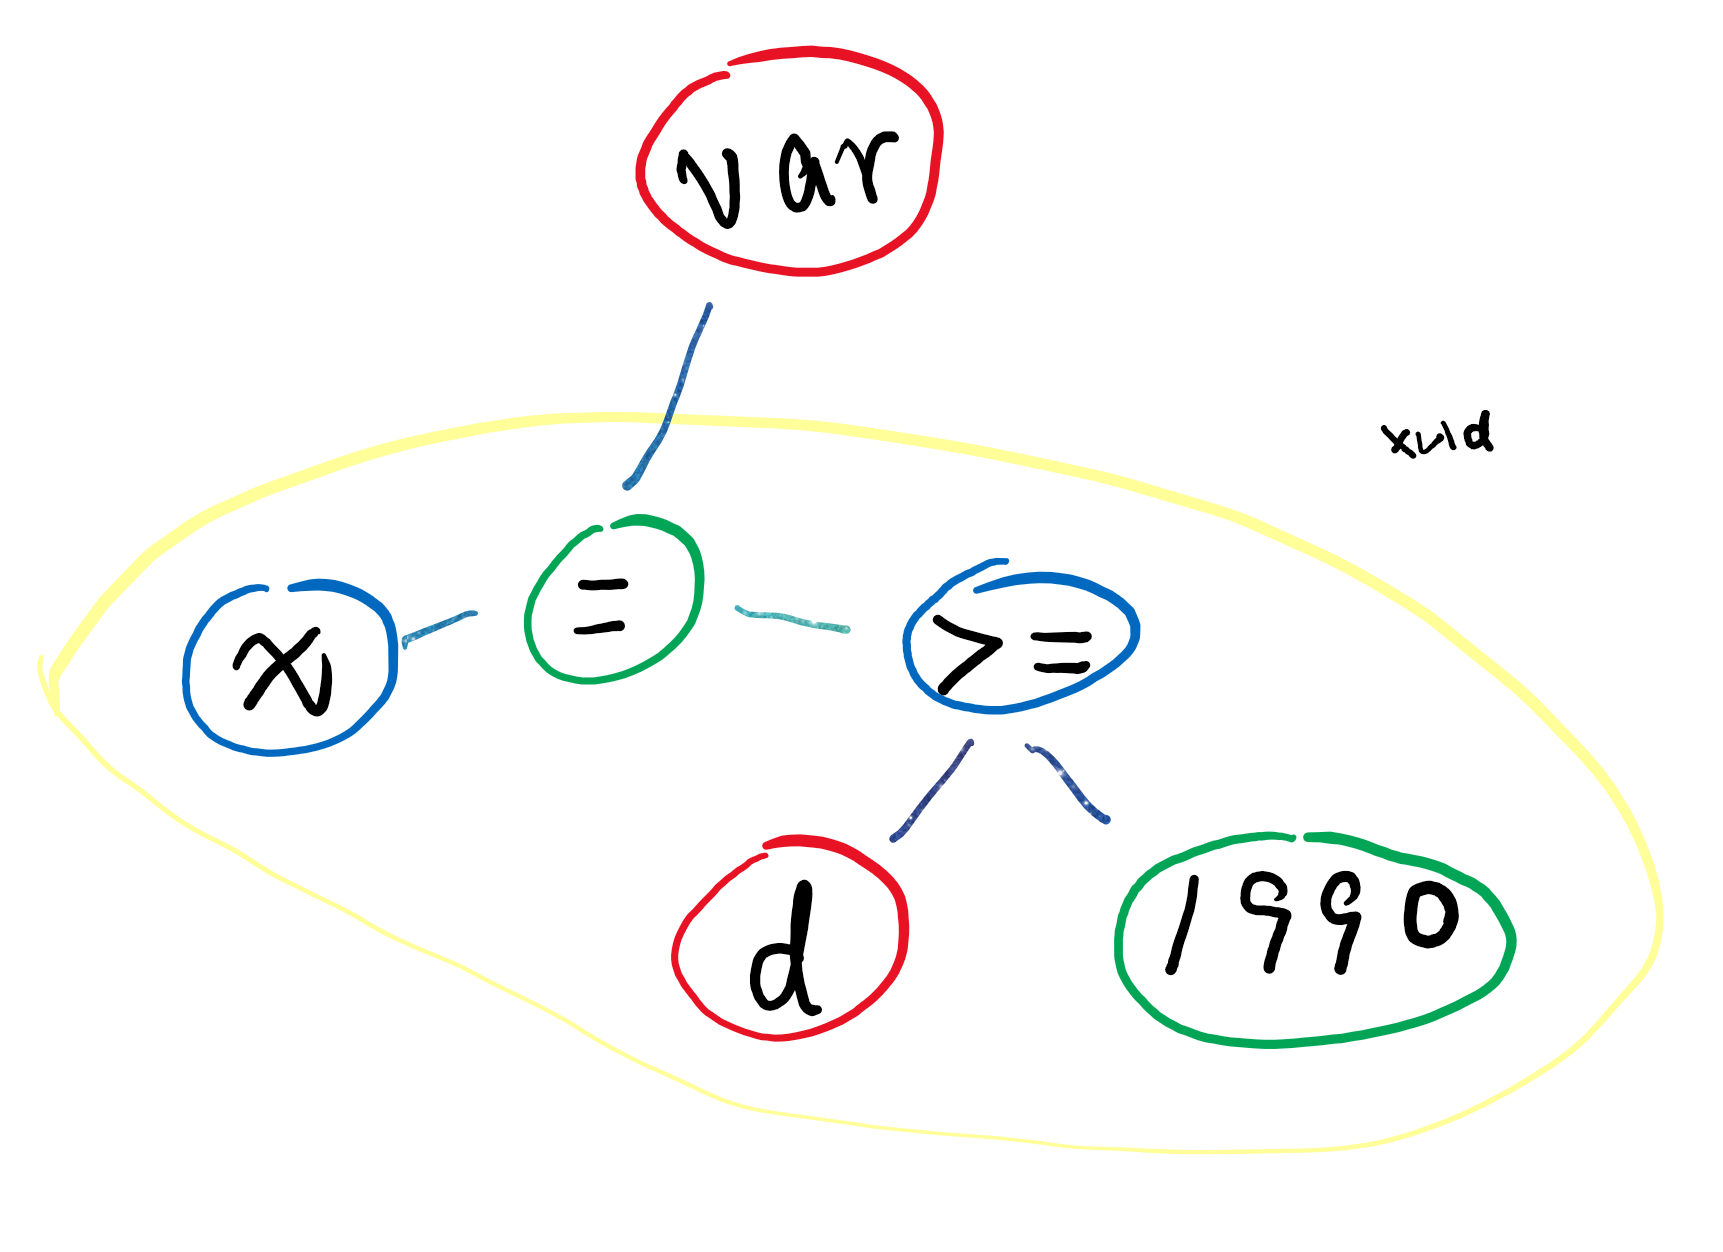 var
xuld
x
=
>=
d
1990